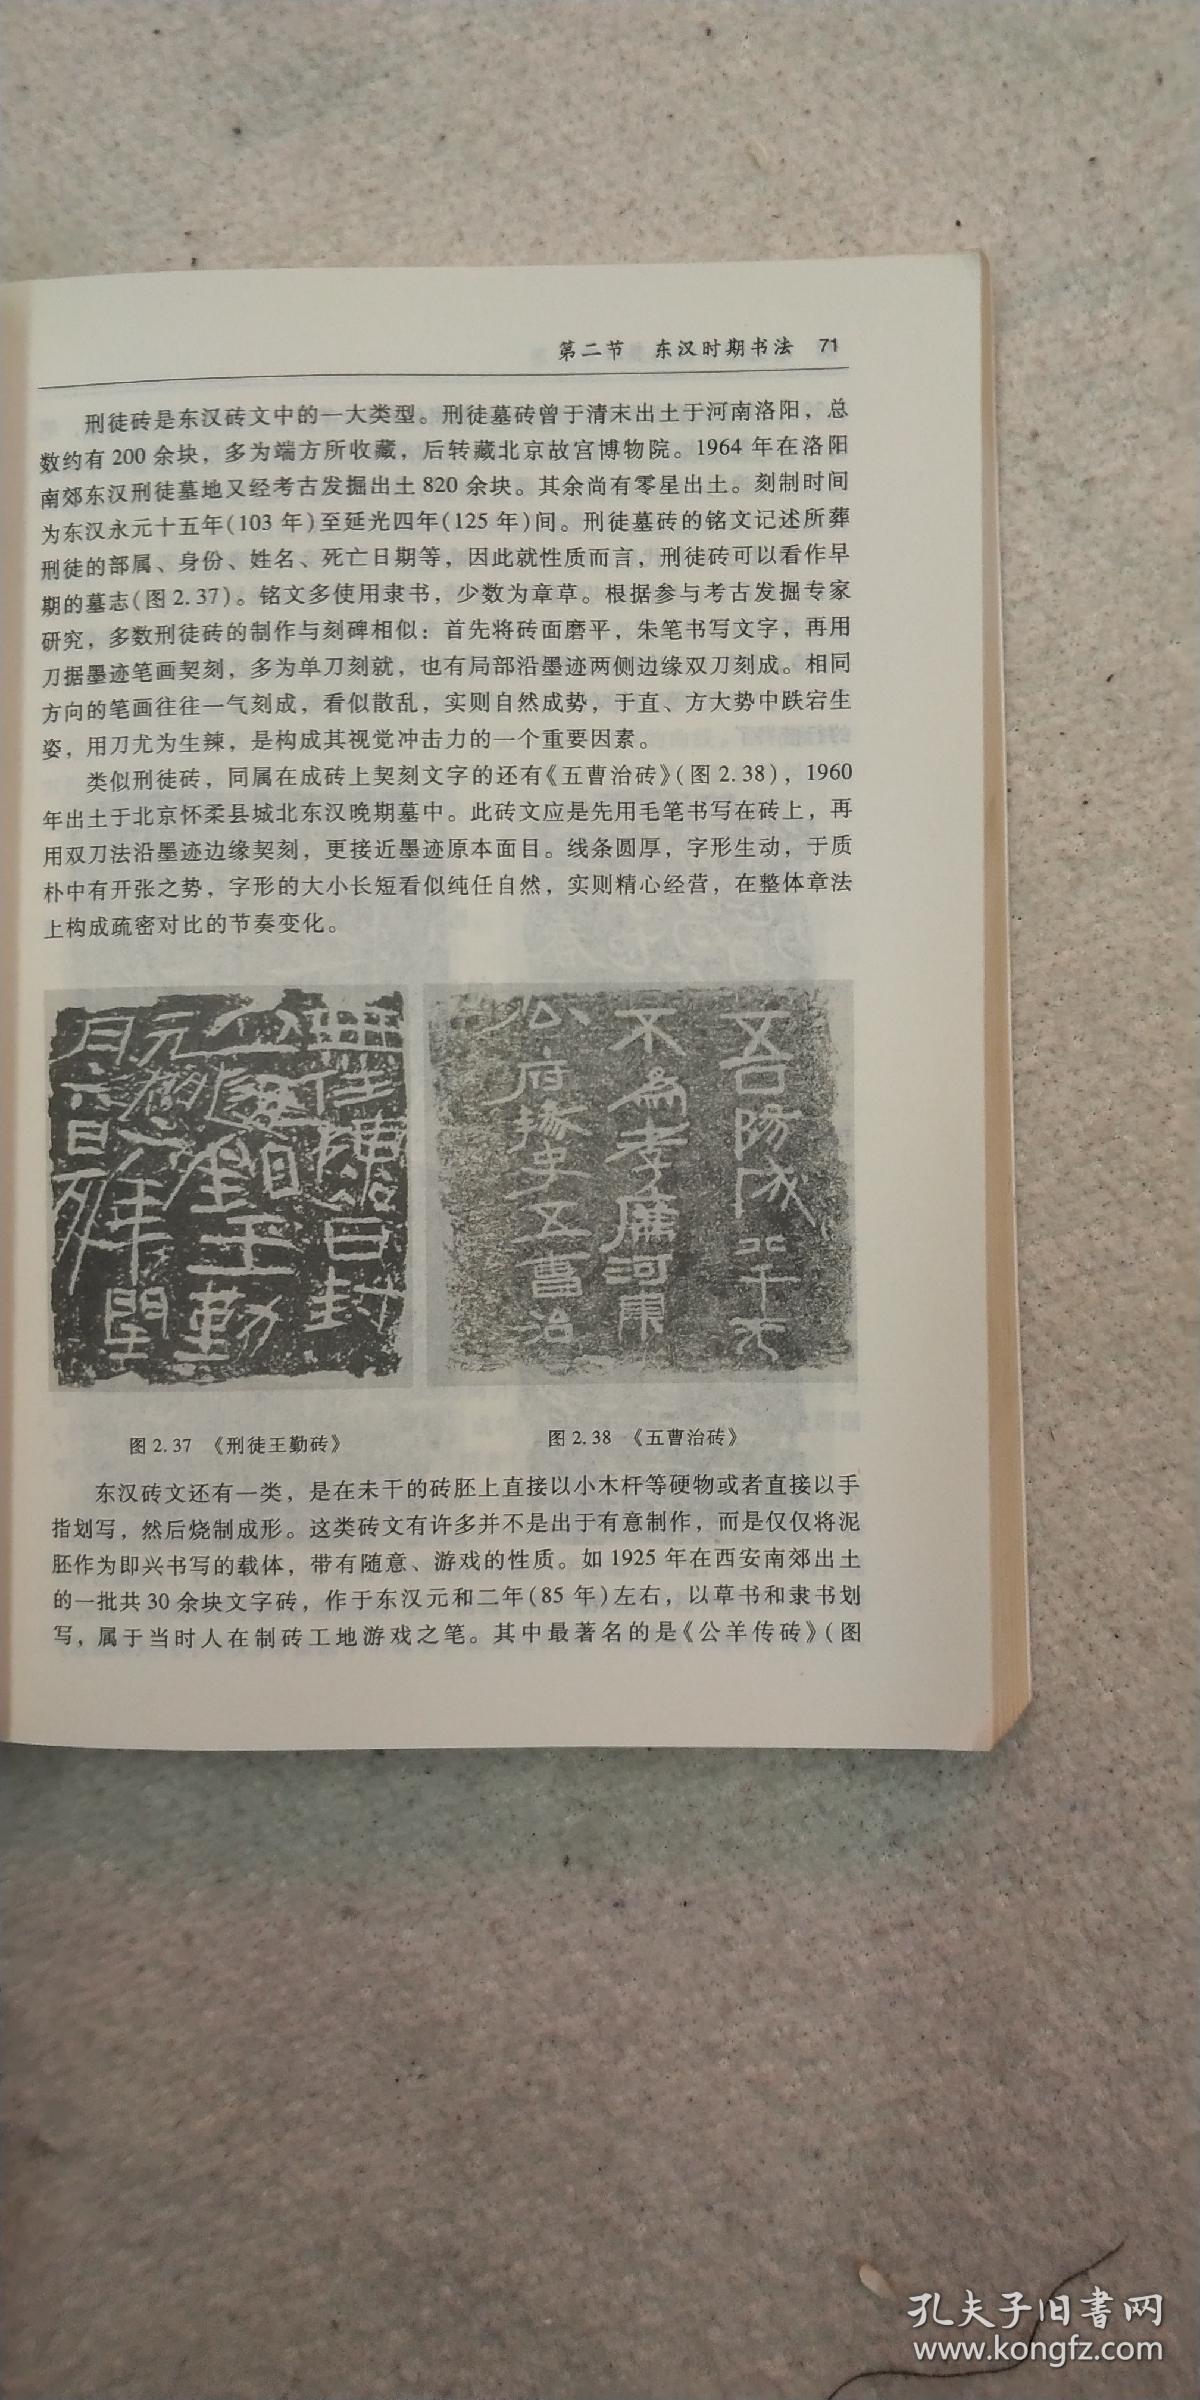 第二节 东汉时期书法 71
刑徒砖是东汉砖文中的一大类型。刑徒墓砖曾于清末出土于河南洛阳，总
数约有200余块，多为端方所收藏，后转藏北京故宫博物院。1964年在洛阳
南郊东汉刑徒墓地又经考古发掘出土820余块。其余尚有零星出土。刻制时间
为东汉永元十五年(103年)至延光四年(125年)间。刑徒墓砖的铭文记述所葬
刑徒的部属、身份、姓名、死亡日期等，因此就性质而言，刑徒砖可以看作早
期的墓志(图2.37)。铭文多使用隶书，少数为章草。根据参与考古发掘专家
研究，多数刑徒砖的制作与刻碑相似：首先将砖面磨平，朱笔书写文字，再用
刀据墨迹笔画契刻，多为单刀刻就，也有局部沿墨迹两侧边缘双刀刻成。相同
方向的笔画往往一气刻成，看似散乱，实则自然成势，于直、方大势中跌宕生
姿，用刀尤为生辣，是构成其视觉冲击力的一个重要因素。
类似刑徒砖，同属在成砖上契刻文字的还有《五曹治砖》(图2.38)，1960
年出土于北京怀柔县城北东汉晚期墓中。此砖文应是先用毛笔书写在砖上，再
用双刀法沿墨迹边缘契刻，更接近墨迹原本面目。线条圆厚，字形生动，于质
朴中有开张之势，字形的大小长短看似纯任自然，实则精心经营，在整体章法
上构成疏密对比的节奏变化。
吾阳成北千无
不为孝廉河東
公府掾史五曹治
图2.37 《刑徒王勤砖》
图2.38 《五曹治砖》
东汉砖文还有一类，是在未干的砖胚上直接以小木杆等硬物或者直接以手
指划写，然后烧制成形。这类砖文有许多并不是出于有意制作，而是仅仅将泥
胚作为即兴书写的载体，带有随意、游戏的性质。如1925年在西安南郊出土
的一批共30余块文字砖，作于东汉元和二年(85年)左右，以草书和隶书划
写，属于当时人在制砖工地游戏之笔。其中最著名的是《公羊传砖》(图
孔夫子旧書网
www.kongfz.com